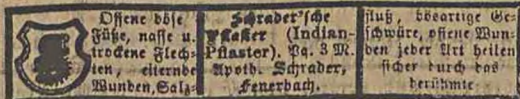 Offene böse
Füße, nasse u.
trockene Flech-
ten, eiternde
Wunden, Salz-
fluß, bösartige Ge-
schwüre, offene Wun-
den jeder Art heilen
sicher durch das
berühmte
Schrader'sche
Pflaster (Indian-
Pflaster). Pa. 3 M.
Apoth. Schrader,
Feuerbach.